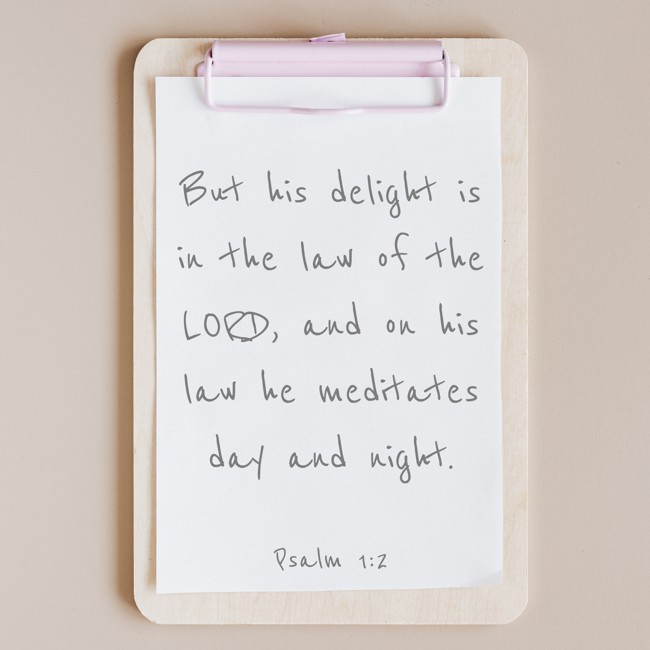 But his delight is
in the law of the
LORD, and on his
law he meditates
day and night.
Psalm 1:2